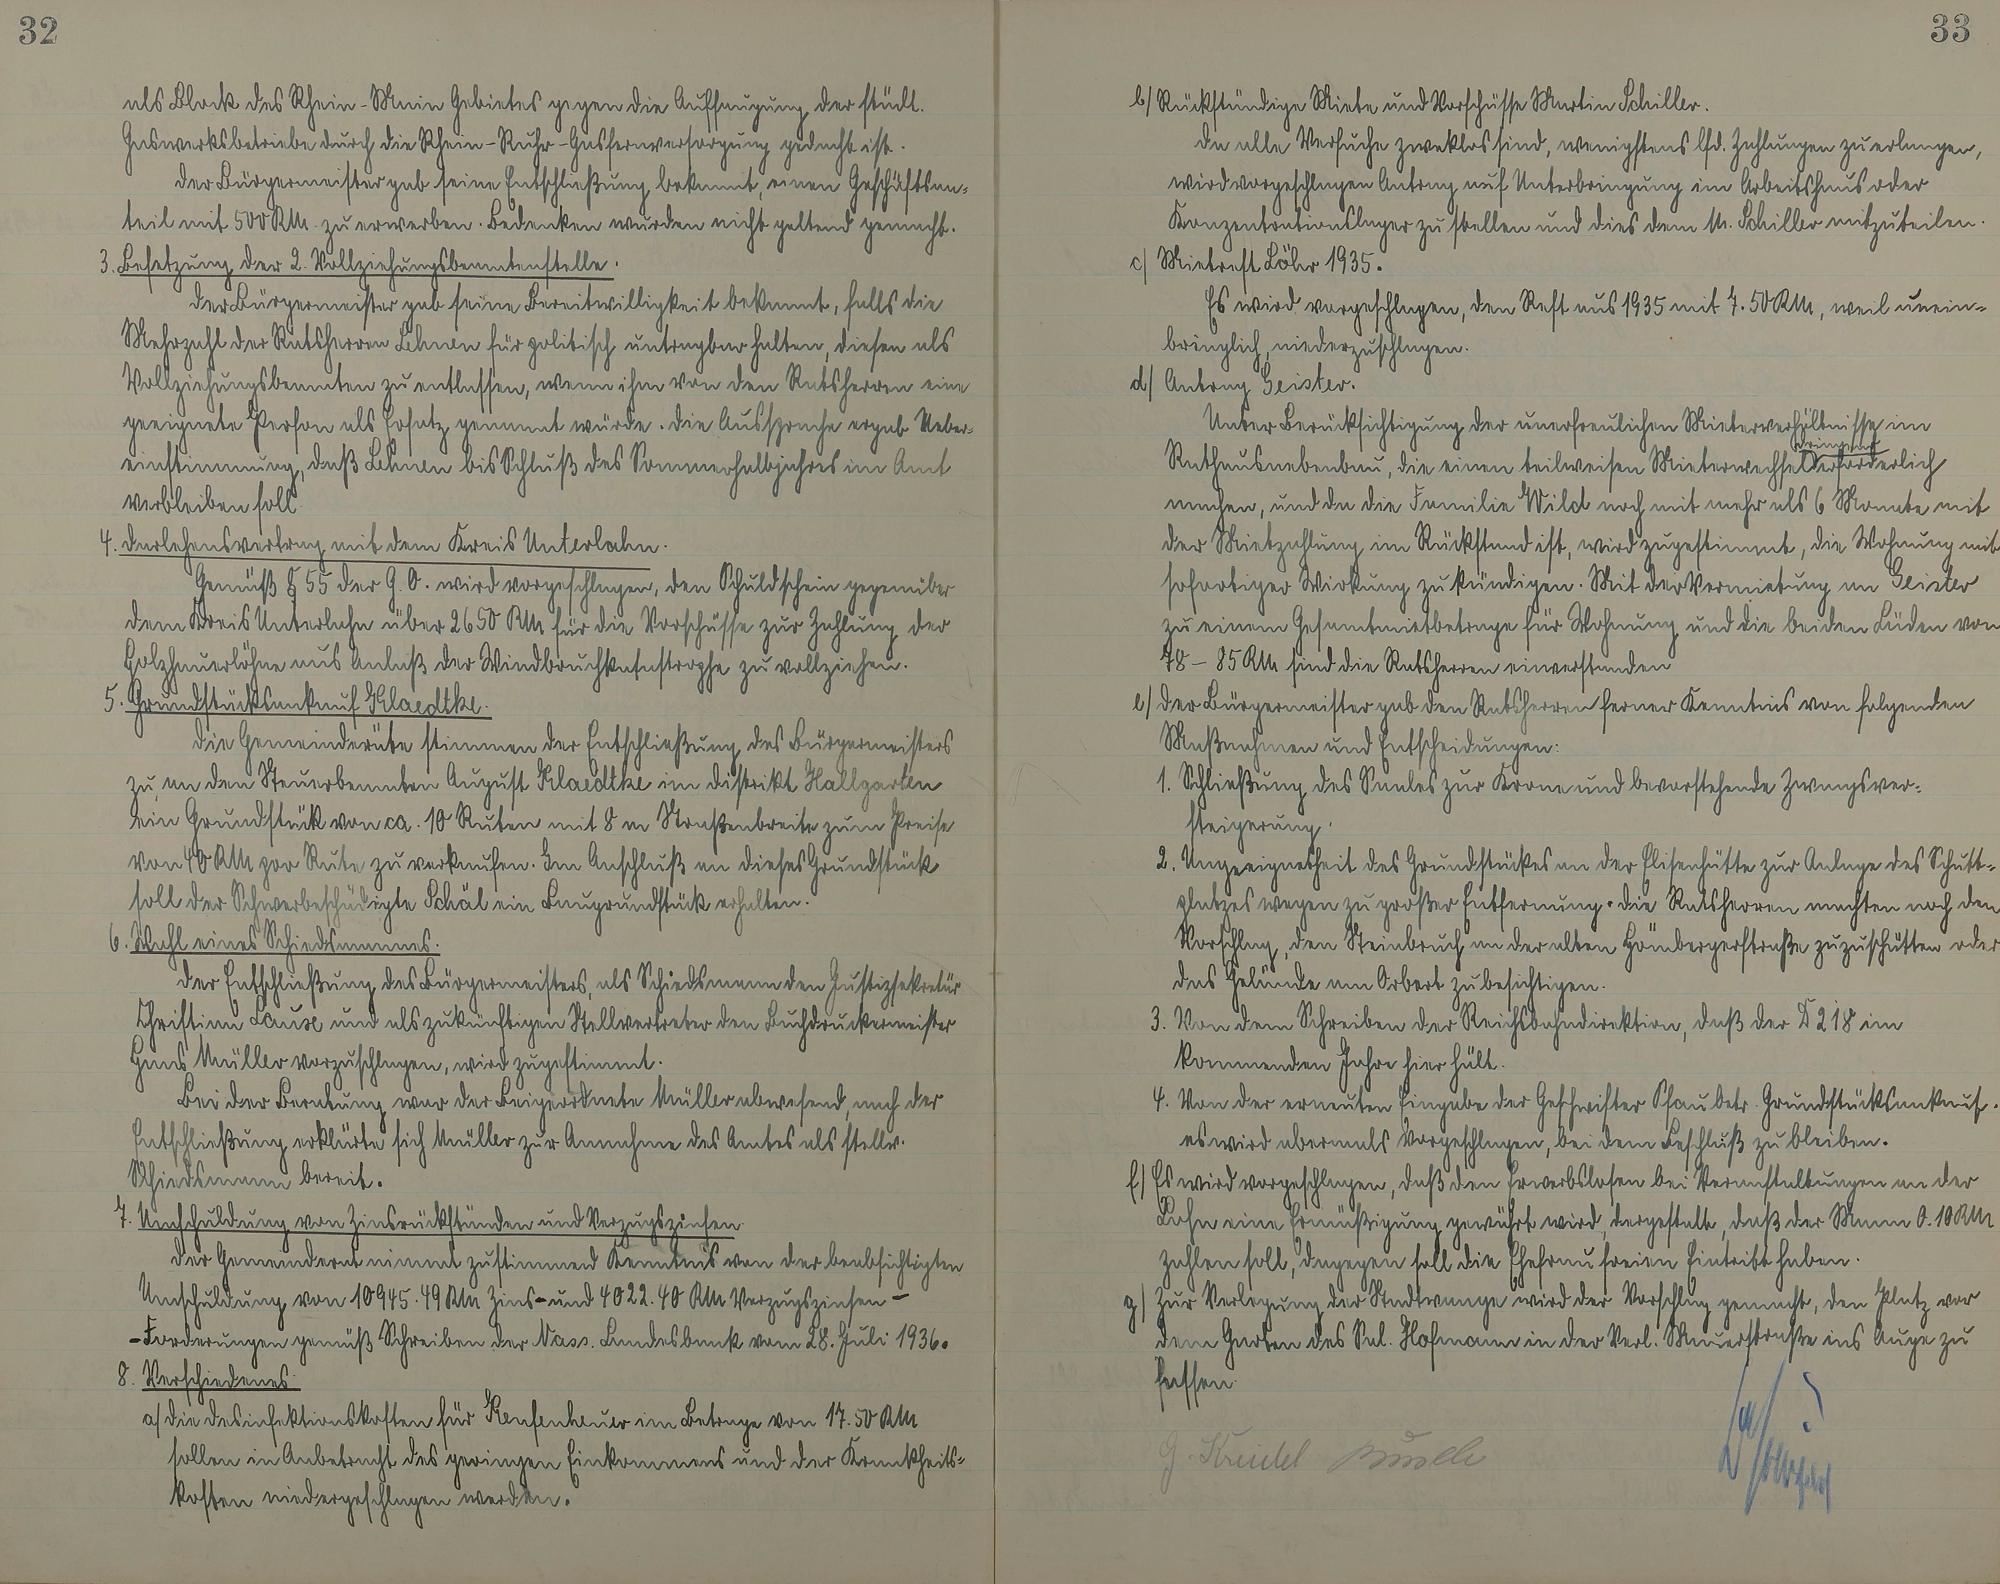 32
als Block des Rhein-Main Gebietes gegen die Aufsaugung der städt.
Gaswerksbetriebe durch die Rhein-Ruhr-Gasfernversorgung gedacht ist.
Der Bürgermeister gab seine Entschließung bekannt, einen Geschäftsan-
teil mit 500 RM. zu erwerben. Bedenken wurden nicht geltend gemacht.
3. Besetzung der 2. Vollziehungsbeamtenstelle.
Der Bürgermeister gab seine Bereitwilligkeit bekannt, falls die
Mehrzahl der Ratsherren Lehnen für politisch untragbar halten, diesen als
Vollziehungsbeamten zu entlassen, wenn ihm von den Ratsherren eine
geeignete Person als Ersatz genannt würde. Die Aussprache ergab Ueber-
einstimmung, daß Lehnen bis Schluß des Sommerhalbjahres im Amt
verbleiben soll
4. Darlehensvertrag mit dem Kreis Unterlahn.
Gemäß § 55 der G.O. wird vorgeschlagen, den Schuldschein gegenüber
dem Kreis Unterlahn über 2650 RM für die Vorschüsse zur Zahlung der
Holzhauerlöhne aus Anlaß der Windbruchkatastrophe zu vollziehen.
5. Grundstücksankauf Klaedtke.
Die Gemeinderäte stimmen der Entschließung des Bürgermeisters
zu, an den Steuerbeamten August Klaedtke im Distrikt Hallgarten
ein Grundstück von ca. 10 Ruten mit 8 m Straßenbreite zum Preise
von 40 RM pro Rute zu verkaufen. Im Anschluß an dieses Grundstück
soll der Schwerbeschädigte Schäl ein Baugrundstück erhalten.
6. Wahl eines Schiedsmannes.
Der Entschließung des Bürgermeisters, als Schiedsmann den Justizsekretär
Christian Lause und als zukünftigen Stellvertreter den Buchdruckermeister
Hans Müller vorzuschlagen, wird zugestimmt.
Bei der Beratung war der Beigeordnete Müller abwesend, nach der
Entschließung erklärte sich Müller zur Annahme des Amtes als stellv.
Schiedsmann bereit.
7. Umschuldung von Zinsrückständen und Verzugszinsen.
Der Gemeinderat nimmt zustimmend Kenntnis von der beabsichtigten
Umschuldung von 10945.49 RM Zins- und 4022.40 RM Verzugszinsen -
- Forderungen gemäß Schreiben der Nass. Landesbank vom 28. Juli 1936.
8. Verschiedenes.
a) Die Desinfektionskosten für Renfenheuer im Betrage von 17.50 RM
sollen in Anbetracht des geringen Einkommens und der Krankheits-
kosten niedergeschlagen werden.
33
b) Rückständige Miete und Vorschüsse Martin Schiller.
Da alle Versuche zwecklos sind, wenigstens lfd. Zahlungen zu erlangen,
wird vorgeschlagen Antrag auf Unterbringung im Arbeitshaus oder
Konzentrationslager zu stellen und dies dem M. Schiller mitzuteilen.
c) Mietrest Löhr 1935.
Es wird vorgeschlagen, den Rest aus 1935 mit 7.50 RM, weil unein-
bringlich, niederzuschlagen.
d) Antrag Geister.
Unter Berücksichtigung der unerfreulichen Mieterverhältnisse im
dringend
Rathausnebenbau, die einen teilweisen Mieterwechsel erforderlich
machen, und da die Familie Wild noch mit mehr als 6 Monate mit
der Mietzahlung im Rückstand ist, wird zugestimmt, die Wohnung mit
sofortiger Wirkung zu kündigen. Mit der Vermietung an Geister
zu einem Gesamtmietbetrage für Wohnung und die beiden Läden von
78 - 85 RM sind die Ratsherren einverstanden
e) Der Bürgermeister gab den Ratsherren ferner Kenntnis von folgenden
Maßnahmen und Entscheidungen:
1. Schließung des Saales zur Krone und bevorstehende Zwangsver-
steigerung.
2. Ungeeignetheit des Grundstückes an der Elisenhütte zur Anlage des Schutt-
platzes wegen zu großer Entfernung. Die Ratsherren machten noch den
Vorschlag, den Steinbruch an der alten Hömbergerstraße zuzuschütten oder
das Gelände am Orbert zu besichtigen.
3. Von dem Schreiben der Reichsbahndirektion, daß der D 218 im
kommenden Jahre hier hält.
4. Von der erneuten Eingabe der Geschwister Pfau betr. Grundstücksankauf.
es wird abermals vorgeschlagen, bei dem Beschluß zu bleiben.
f) Es wird vorgeschlagen, daß den Erwerbslosen bei Veranstaltungen an der
Lahn eine Ermäßigung gewährt wird, dergestalt, daß der Mann 0.10 RM
zahlen soll, dagegen soll die Ehefrau freien Eintritt haben.
g) Zur Verlegung der Stadtwaage wird der Vorschlag gemacht, den Platz vor
dem Garten des Sal. Hofmann in der Verl. Mauerstraße ins Auge zu
fassen.
G. Kreidel